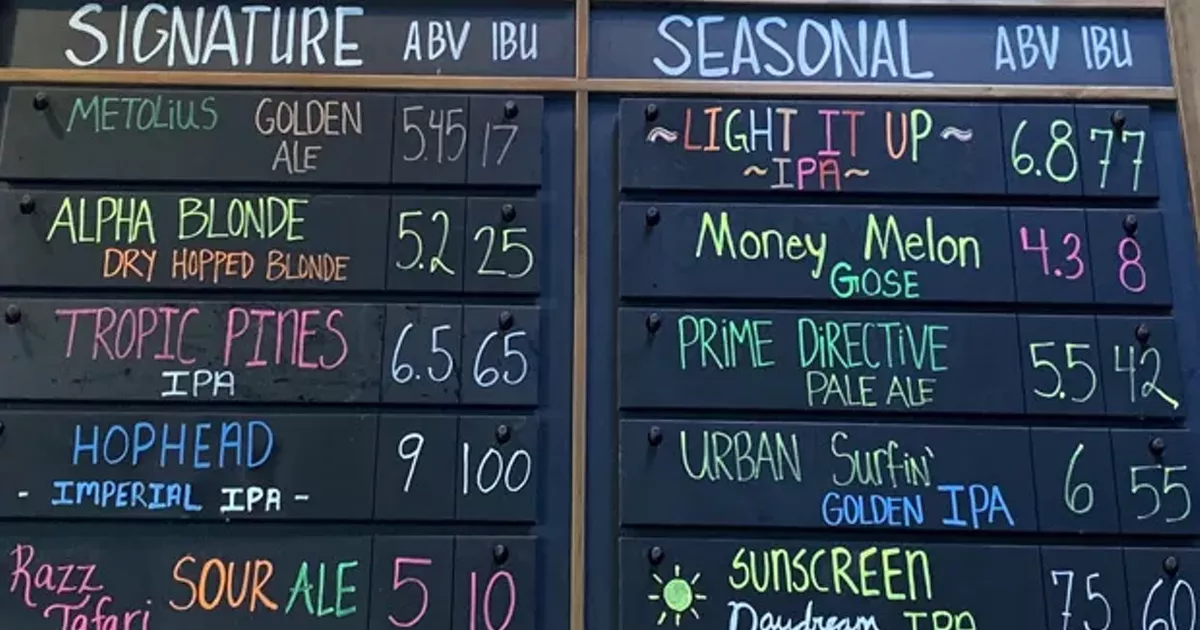 SIGNATURE ABV IBU
METOLIUS GOLDEN 5.45 17
ALE
ALPHA BLONDE 5.2 25
DRY HOPPED BLONDE
TROPIC PINES 6.5 65
IPA
HOPHEAD 9 100
- IMPERIAL IPA -
Razz SOUR ALE 5 10
Tafari
SEASONAL ABV IBU
~LIGHT IT UP~ 6.8 77
~IPA~
Money Melon 4.3 8
GOSE
PRIME DIRECTIVE 5.5 42
PALE ALE
URBAN Surfin' 6 55
GOLDEN IPA
SUNSCREEN 7.5 60
Daydream IPA